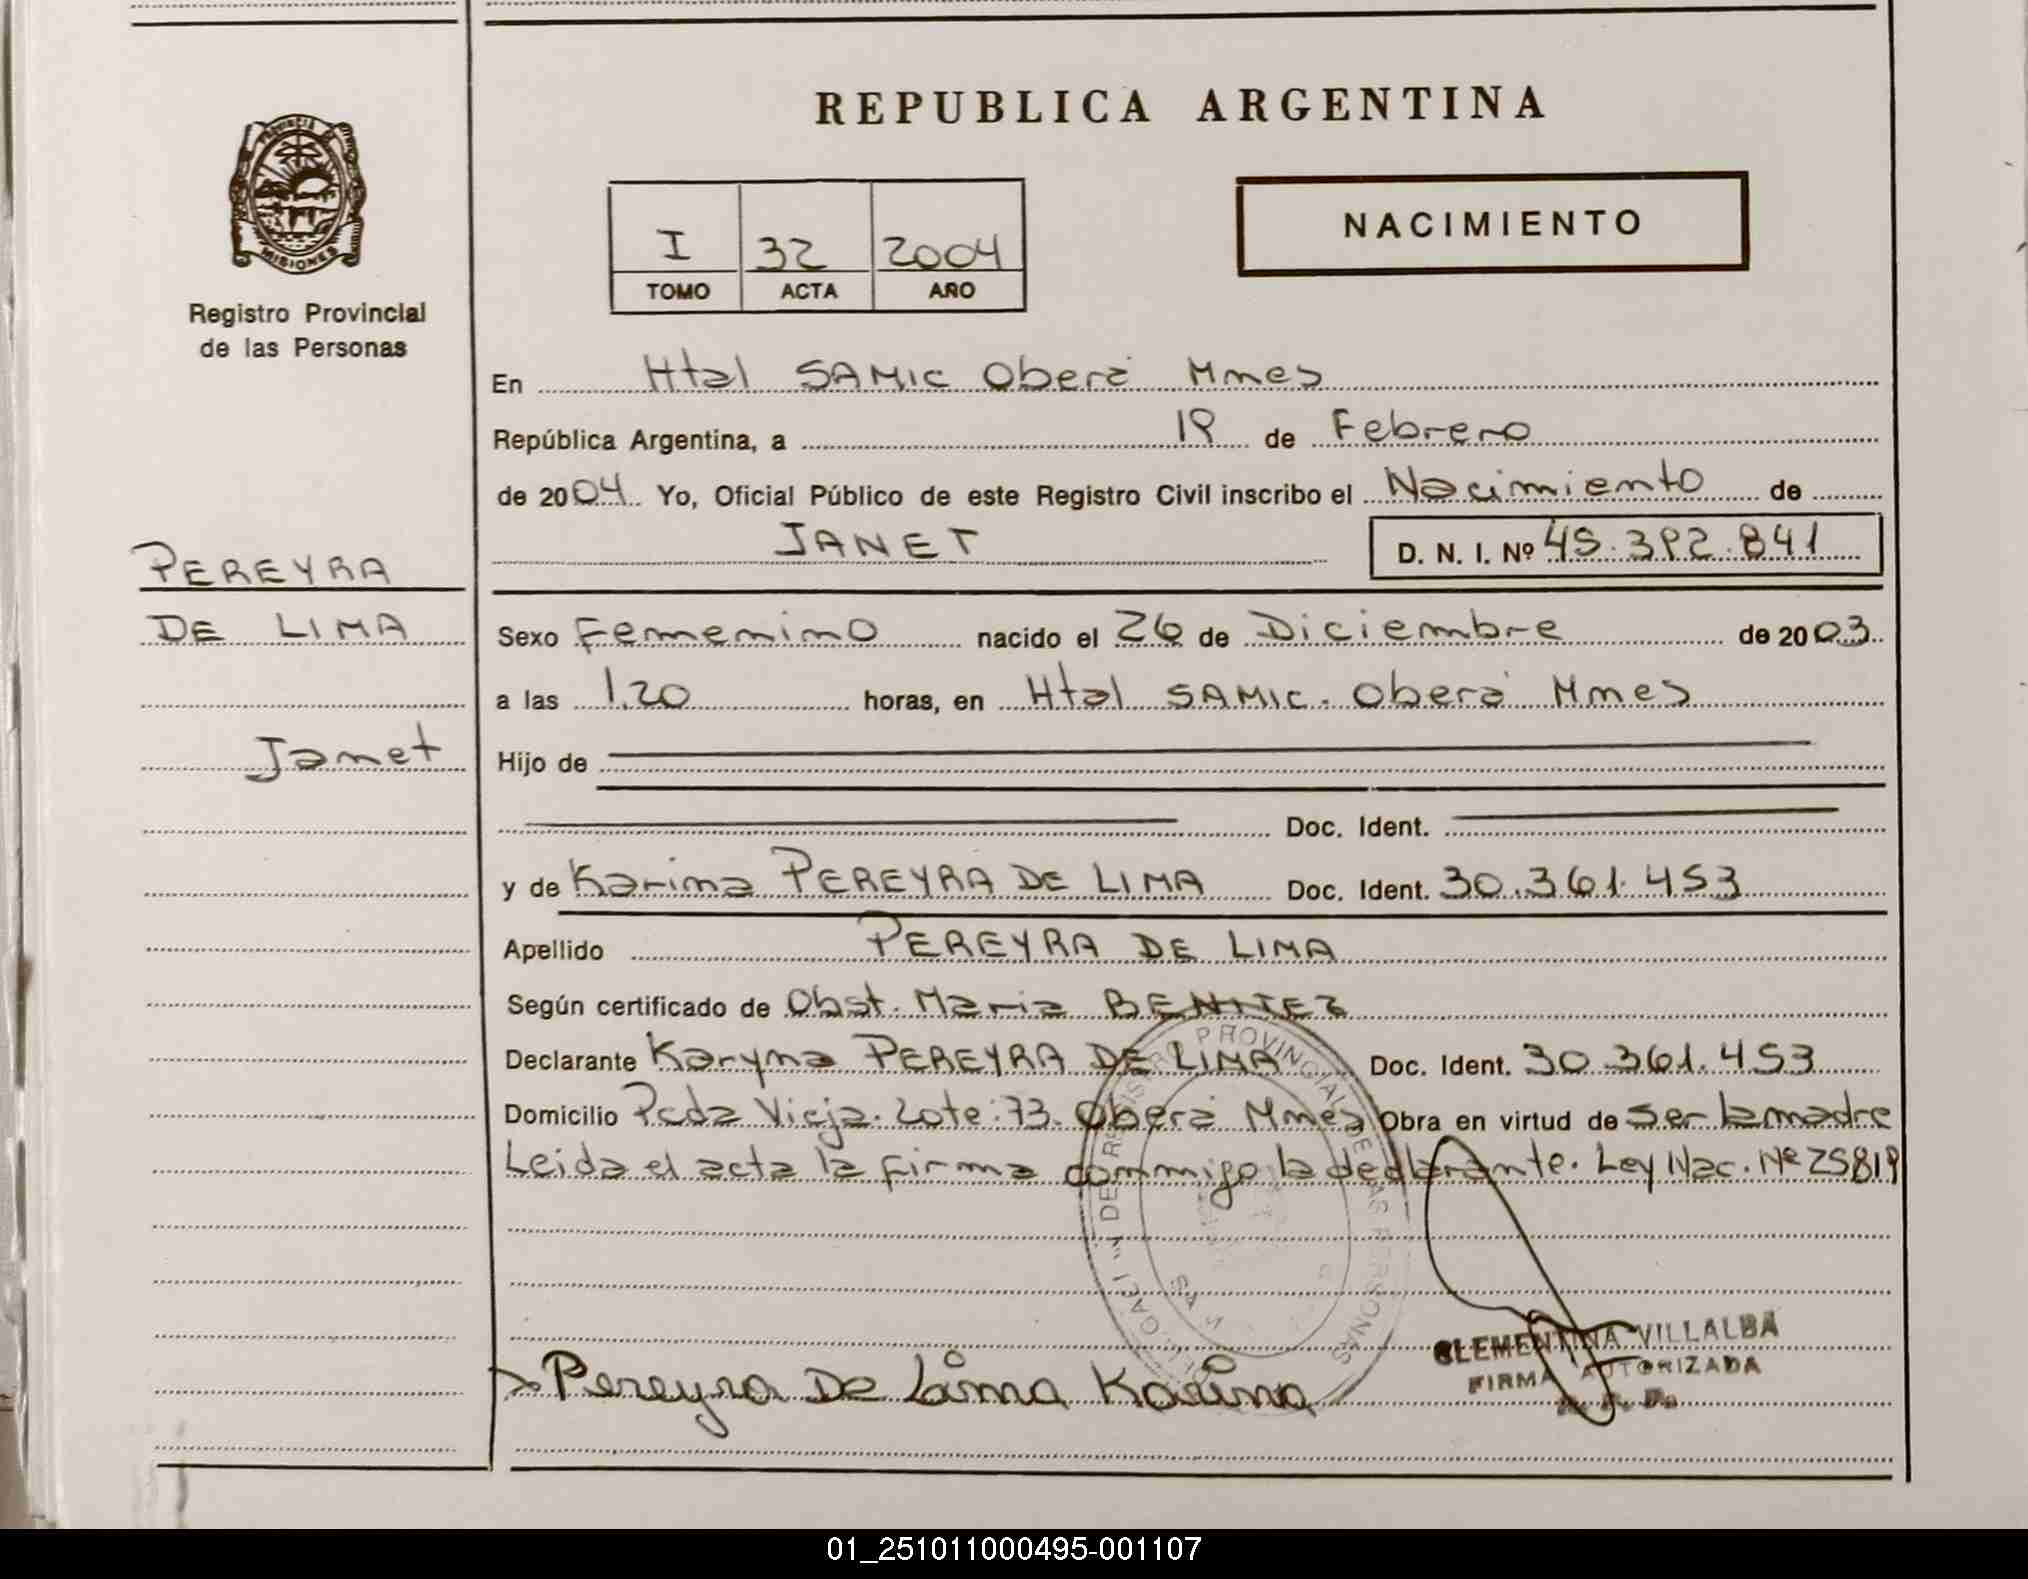 REPUBLICA ARGENTINA
PROVINCIA DE
MISIONES
Registro Provincial
de las Personas
I 32 2004
TOMO ACTA AÑO
NACIMIENTO
En Htal SAMIC Oberá Mnes
República Argentina, a 19 de Febrero
de 2004 Yo, Oficial Público de este Registro Civil inscribo el Nacimiento de
JANET D. N. I. Nº 45.392.841
PEREYRA
DE LIMA
Janet
Sexo Femenino nacido el 26 de Diciembre de 2003
a las 1.20 horas, en Htal SAMIC. Oberá Mnes
Hijo de
Doc. Ident.
y de Karina PEREYRA DE LIMA Doc. Ident. 30.361.453
Apellido PEREYRA DE LIMA
Según certificado de Obst. Maria BENITEZ
Declarante Karyna PEREYRA DE LIMA Doc. Ident. 30.361.453
Domicilio Pcda Vieja. Lote: 73. Oberá Mnes Obra en virtud de ser la madre
Leida el acta la firma conmigo la declarante. Ley Nac. Nº 25819
PROVINCIAL DE LAS PERSONAS
Pereyra De Lima Karina
CLEMENTINA VILLALBA
FIRMA AUTORIZADA
01_251011000495-001107